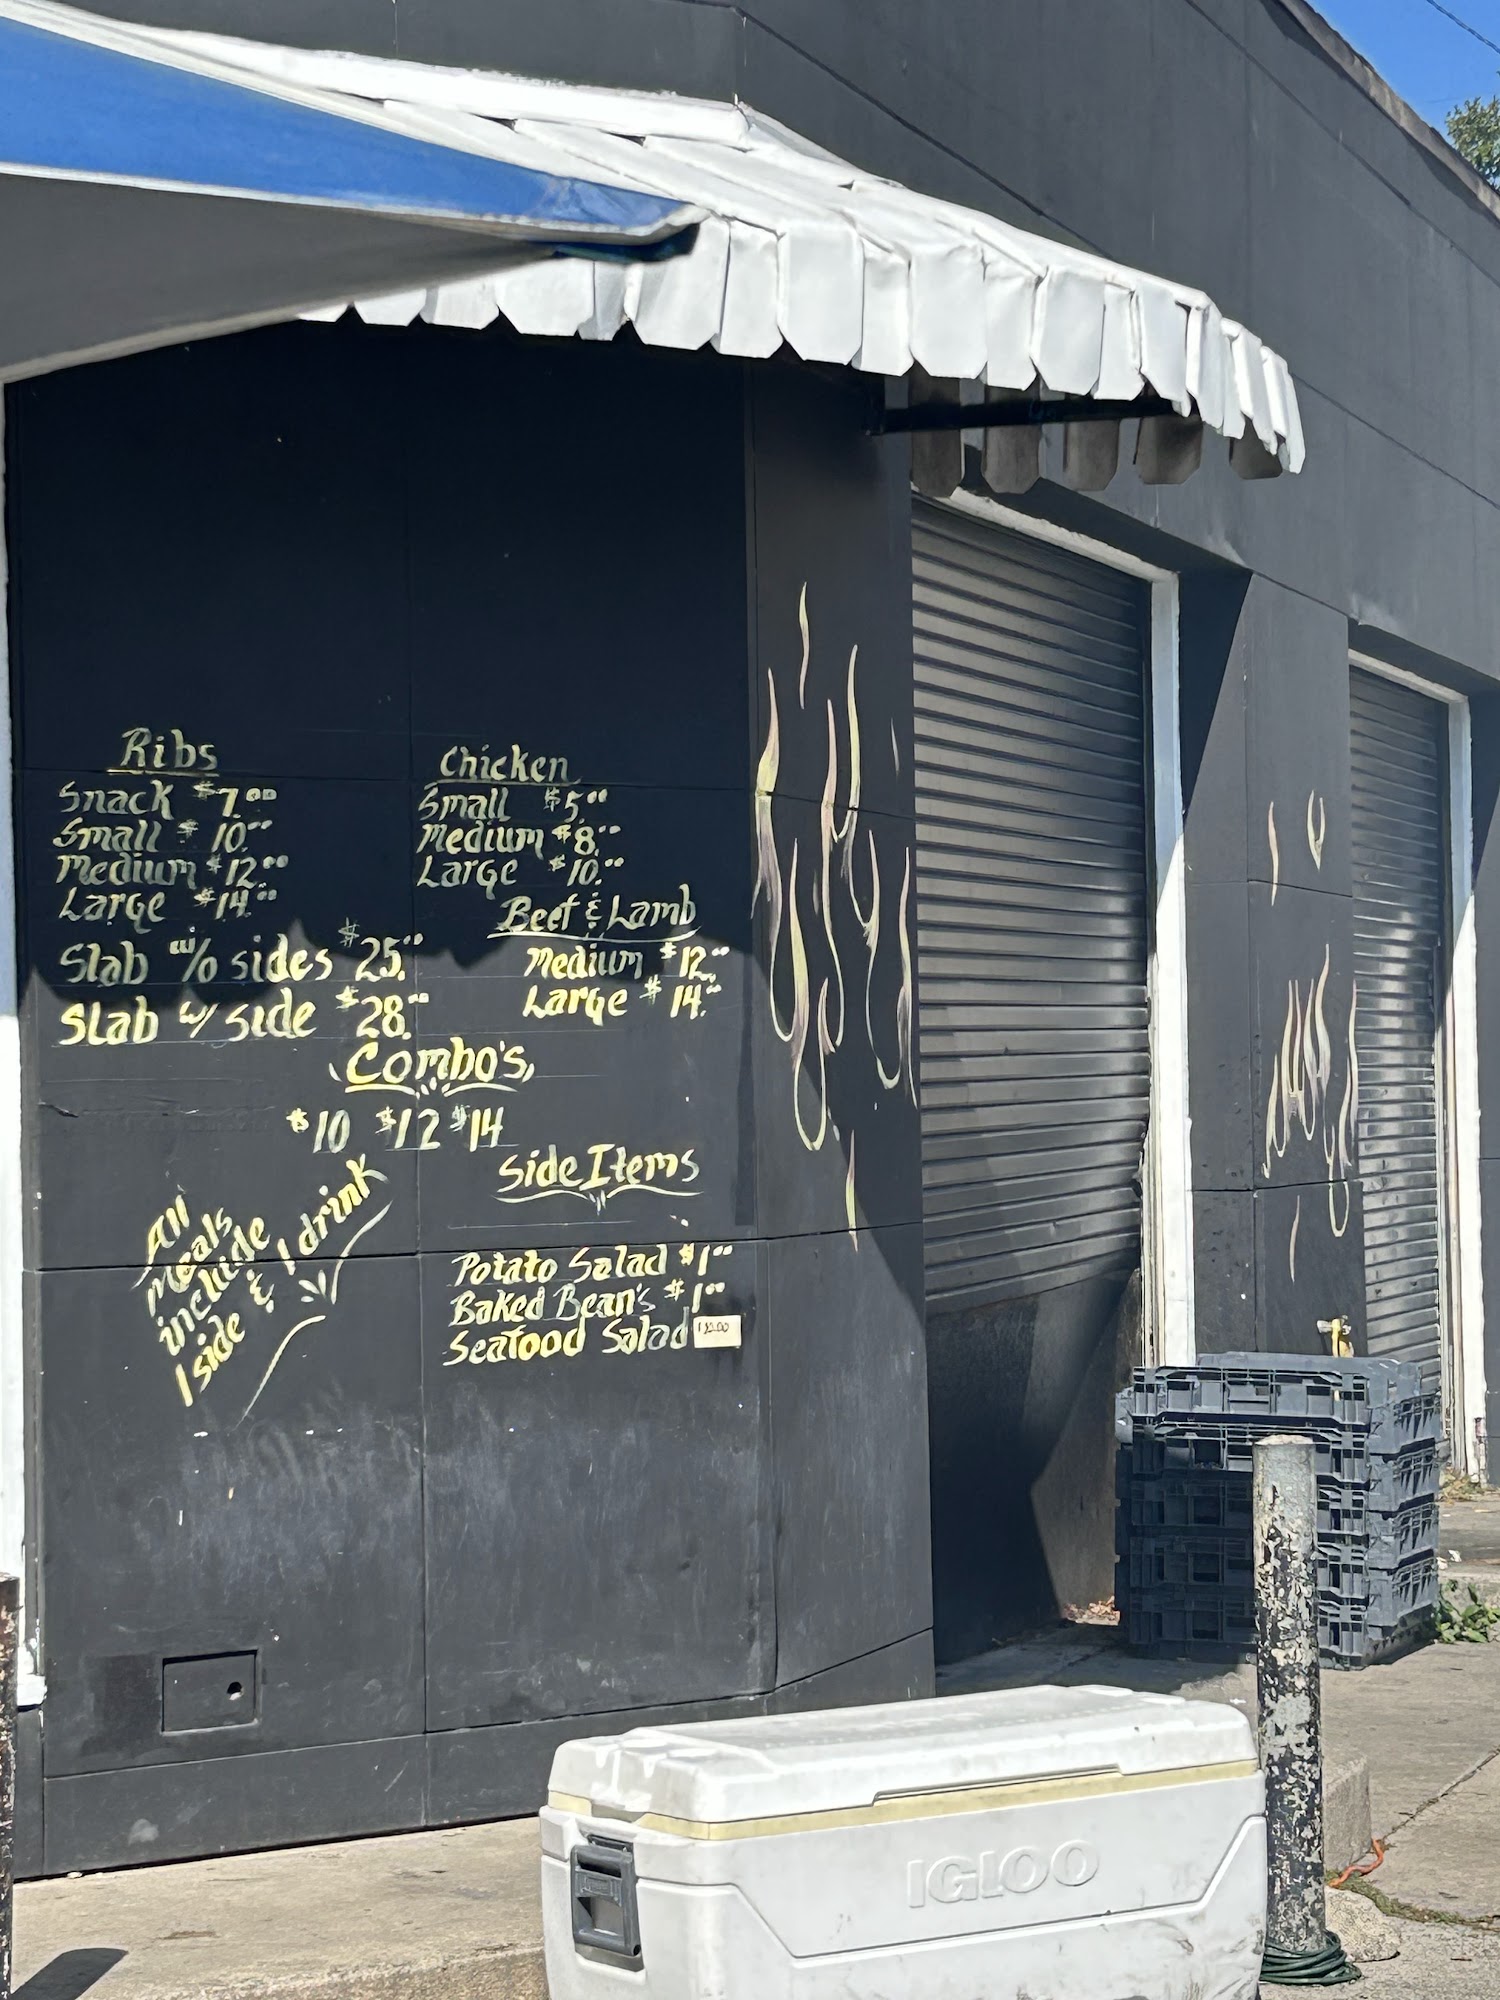 Ribs
Snack $7.00
Small $10.00
Medium $12.00
Large $14.00
Slab w/o sides $25.00
Slab w/ side $28.00
Chicken
Small $5.00
Medium $8.00
Large $10.00
Beef & Lamb
Medium $12.00
Large $14.00
Combo's
$10 $12 $14
All
Meals
include
1 side & 1 drink
Side Items
Potato Salad $1.00
Baked Bean's $1.00
Seafood Salad
IGLOO